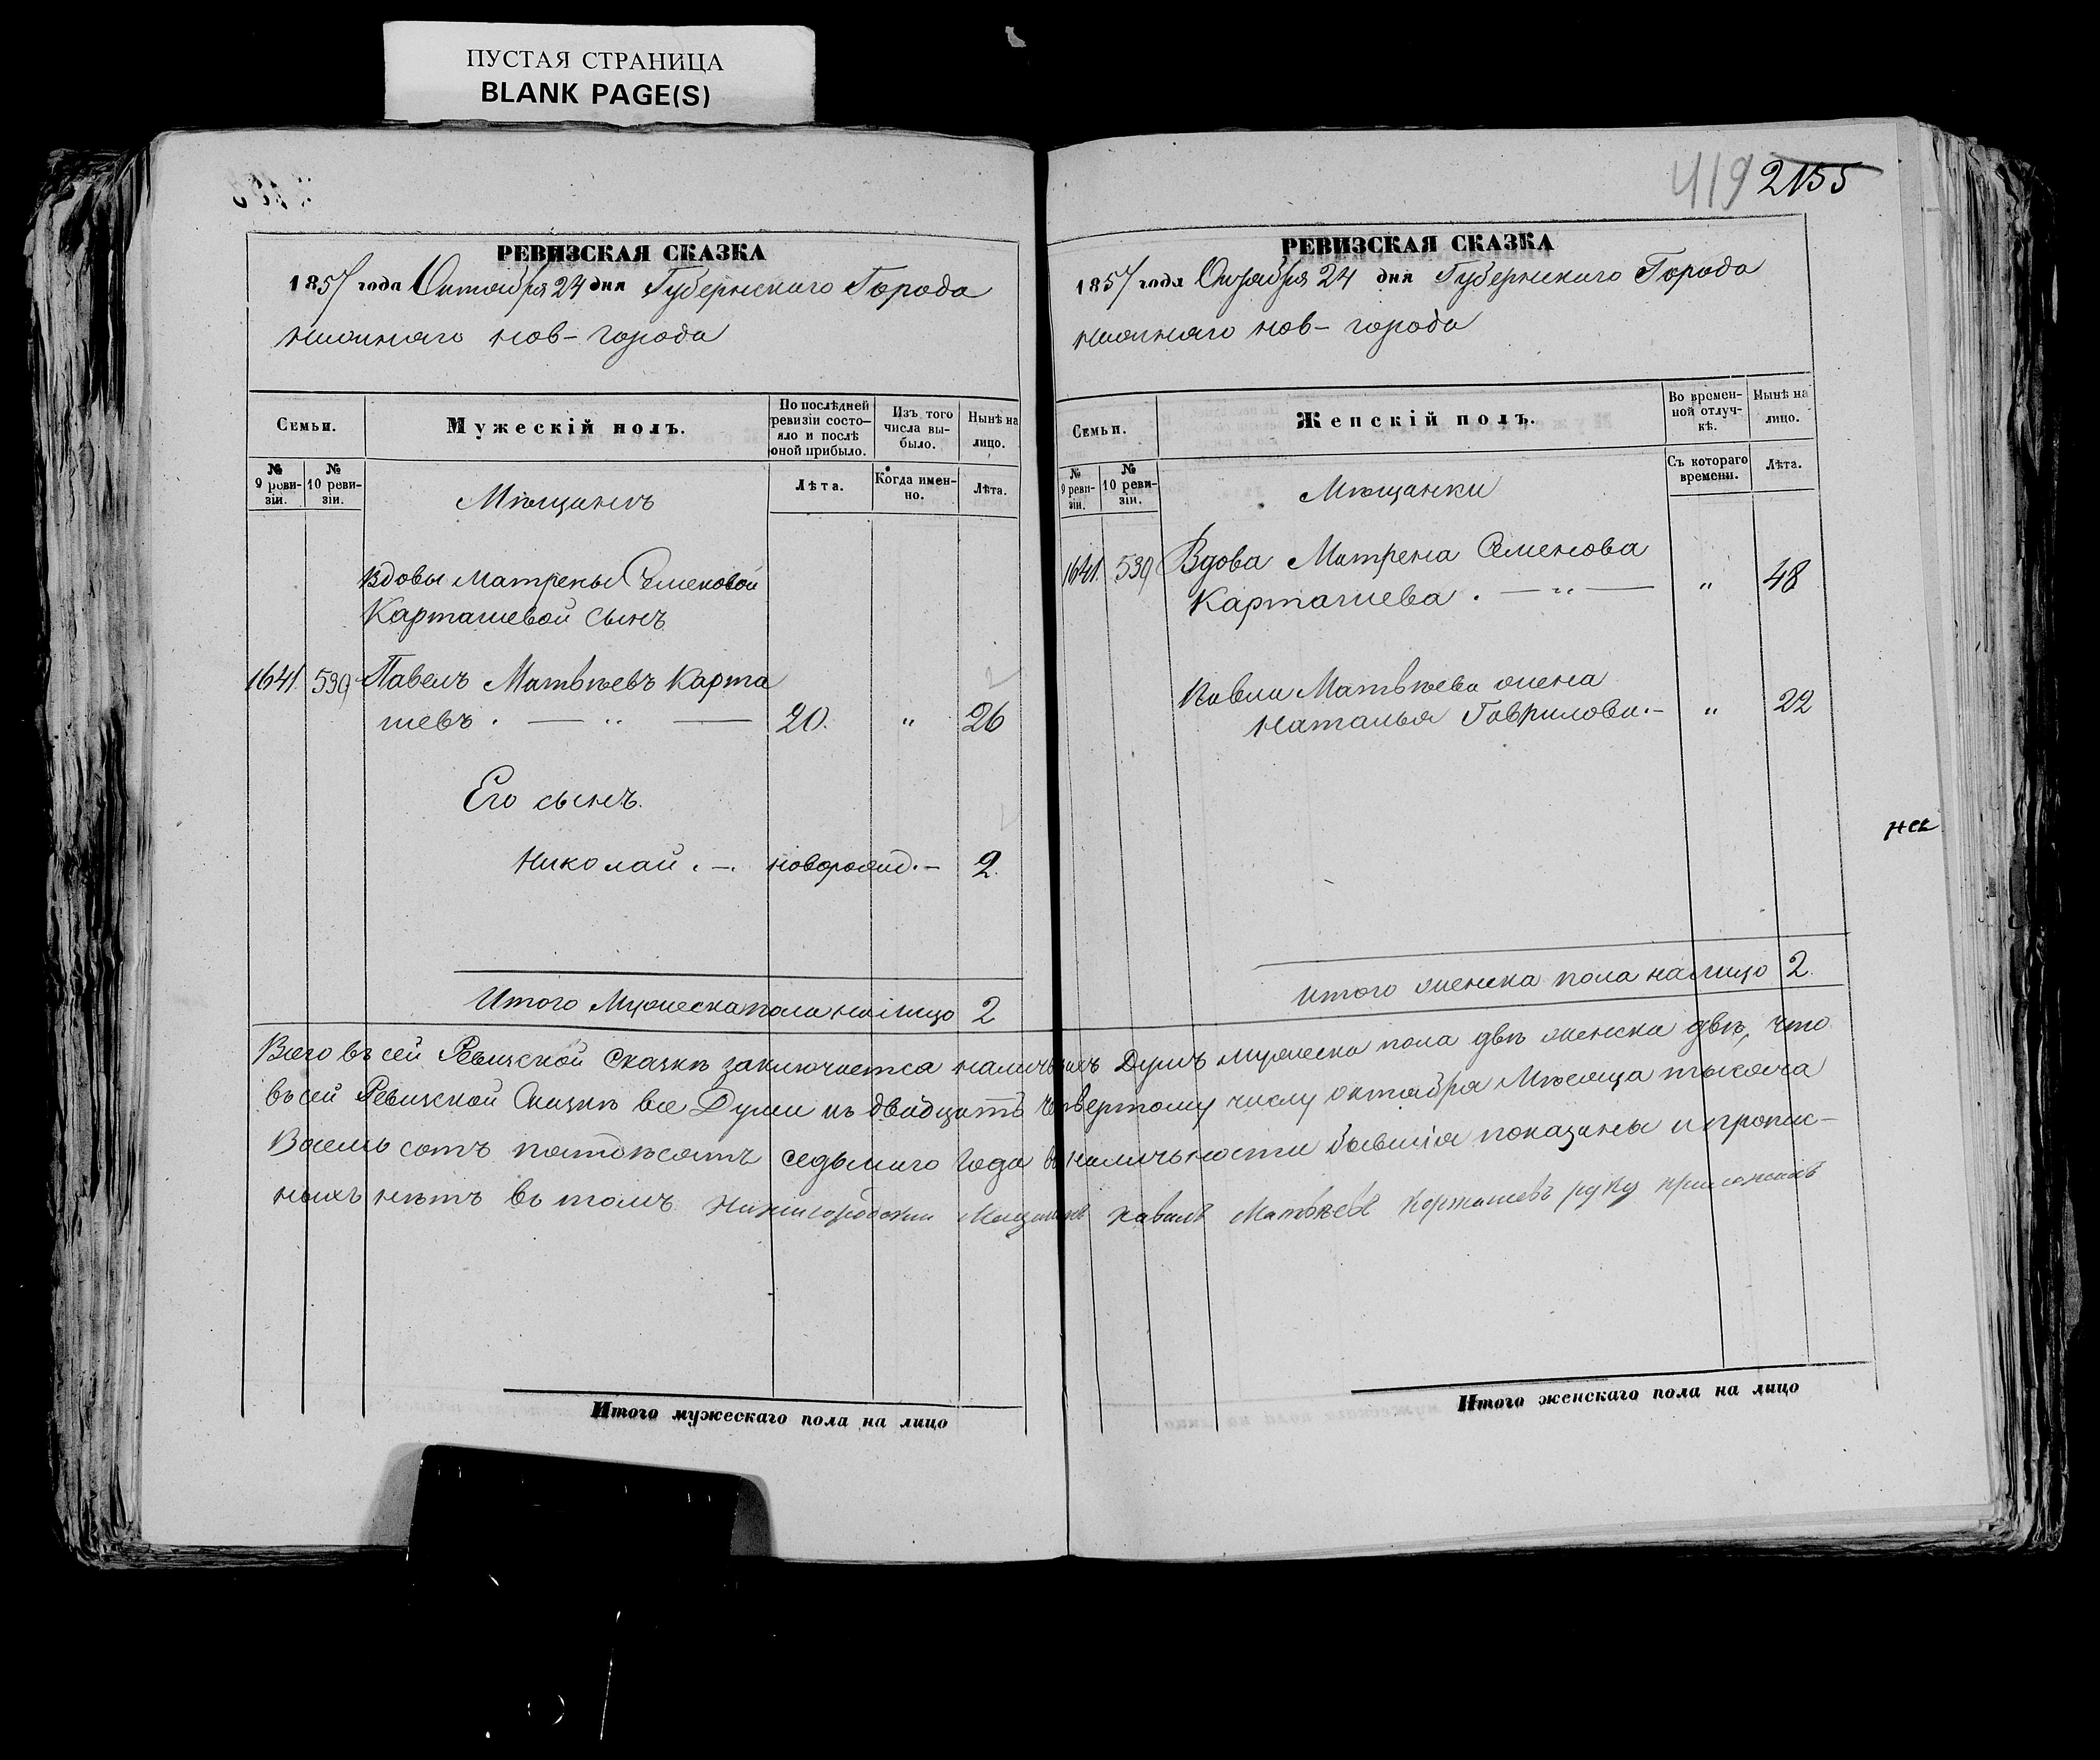 ПУСТАЯ СТРАНИЦА
BLANK PAGE(S)
РЕВИЗСКАЯ СКАЗКА
1857 года Октября 24 дня Губернскаго Города
нижняго нов-города
Семьи.
Мужескій полъ.
По послѣдней ревизіи состояло и послѣ оной прибыло.
Изъ того числа выбыло.
Нынѣ на лицо.
№ 9 ревизіи.
№ 10 ревизіи.
Лѣта.
Когда именно.
Лѣта.
Мѣщанъ
Вдовы Матрены Семеновой
Карташевой сынъ
1641. 539 Павелъ Матвѣевъ Карта
шевъ . — " — 20. " 26
Его сынъ.
Николай . –. новорожд. – 2.
Итого Мужеска пола на лицо 2
Итого мужескаго пола на лицо
419 2155
РЕВИЗСКАЯ СКАЗКА
1857 года Октября 24 дня Губернскаго Города
нижняго нов-города
Семьи.
Женскій полъ.
Во временной отлучкѣ.
Нынѣ на лицо.
№ 9 ревизіи.
№ 10 ревизіи.
Съ котораго времени.
Лѣта.
Мѣщанки
1641. 539 Вдова Матрена Семенова
Карташева . — " — " 48
Павла Матвѣева жена
Наталья Гаврилова. – " 22
Итого женска пола на лицо 2.
Всего въ сей Ревизской Сказкѣ заключается наличныхъ Душъ мужеска пола двѣ женска двѣ, что
въ сей Ревизской Сказкѣ все Души къ двадцать четвертому числу октября Мѣсяца тысяча
Восемь сотъ пятдѣсятъ седьмаго года в наличности бывшія показаны и пропис-
ныхъ нѣтъ въ томъ Нижигородскии Мещанинъ Павелъ Матвѣевъ Карташевъ руку приложилъ
Итого женскаго пола на лицо